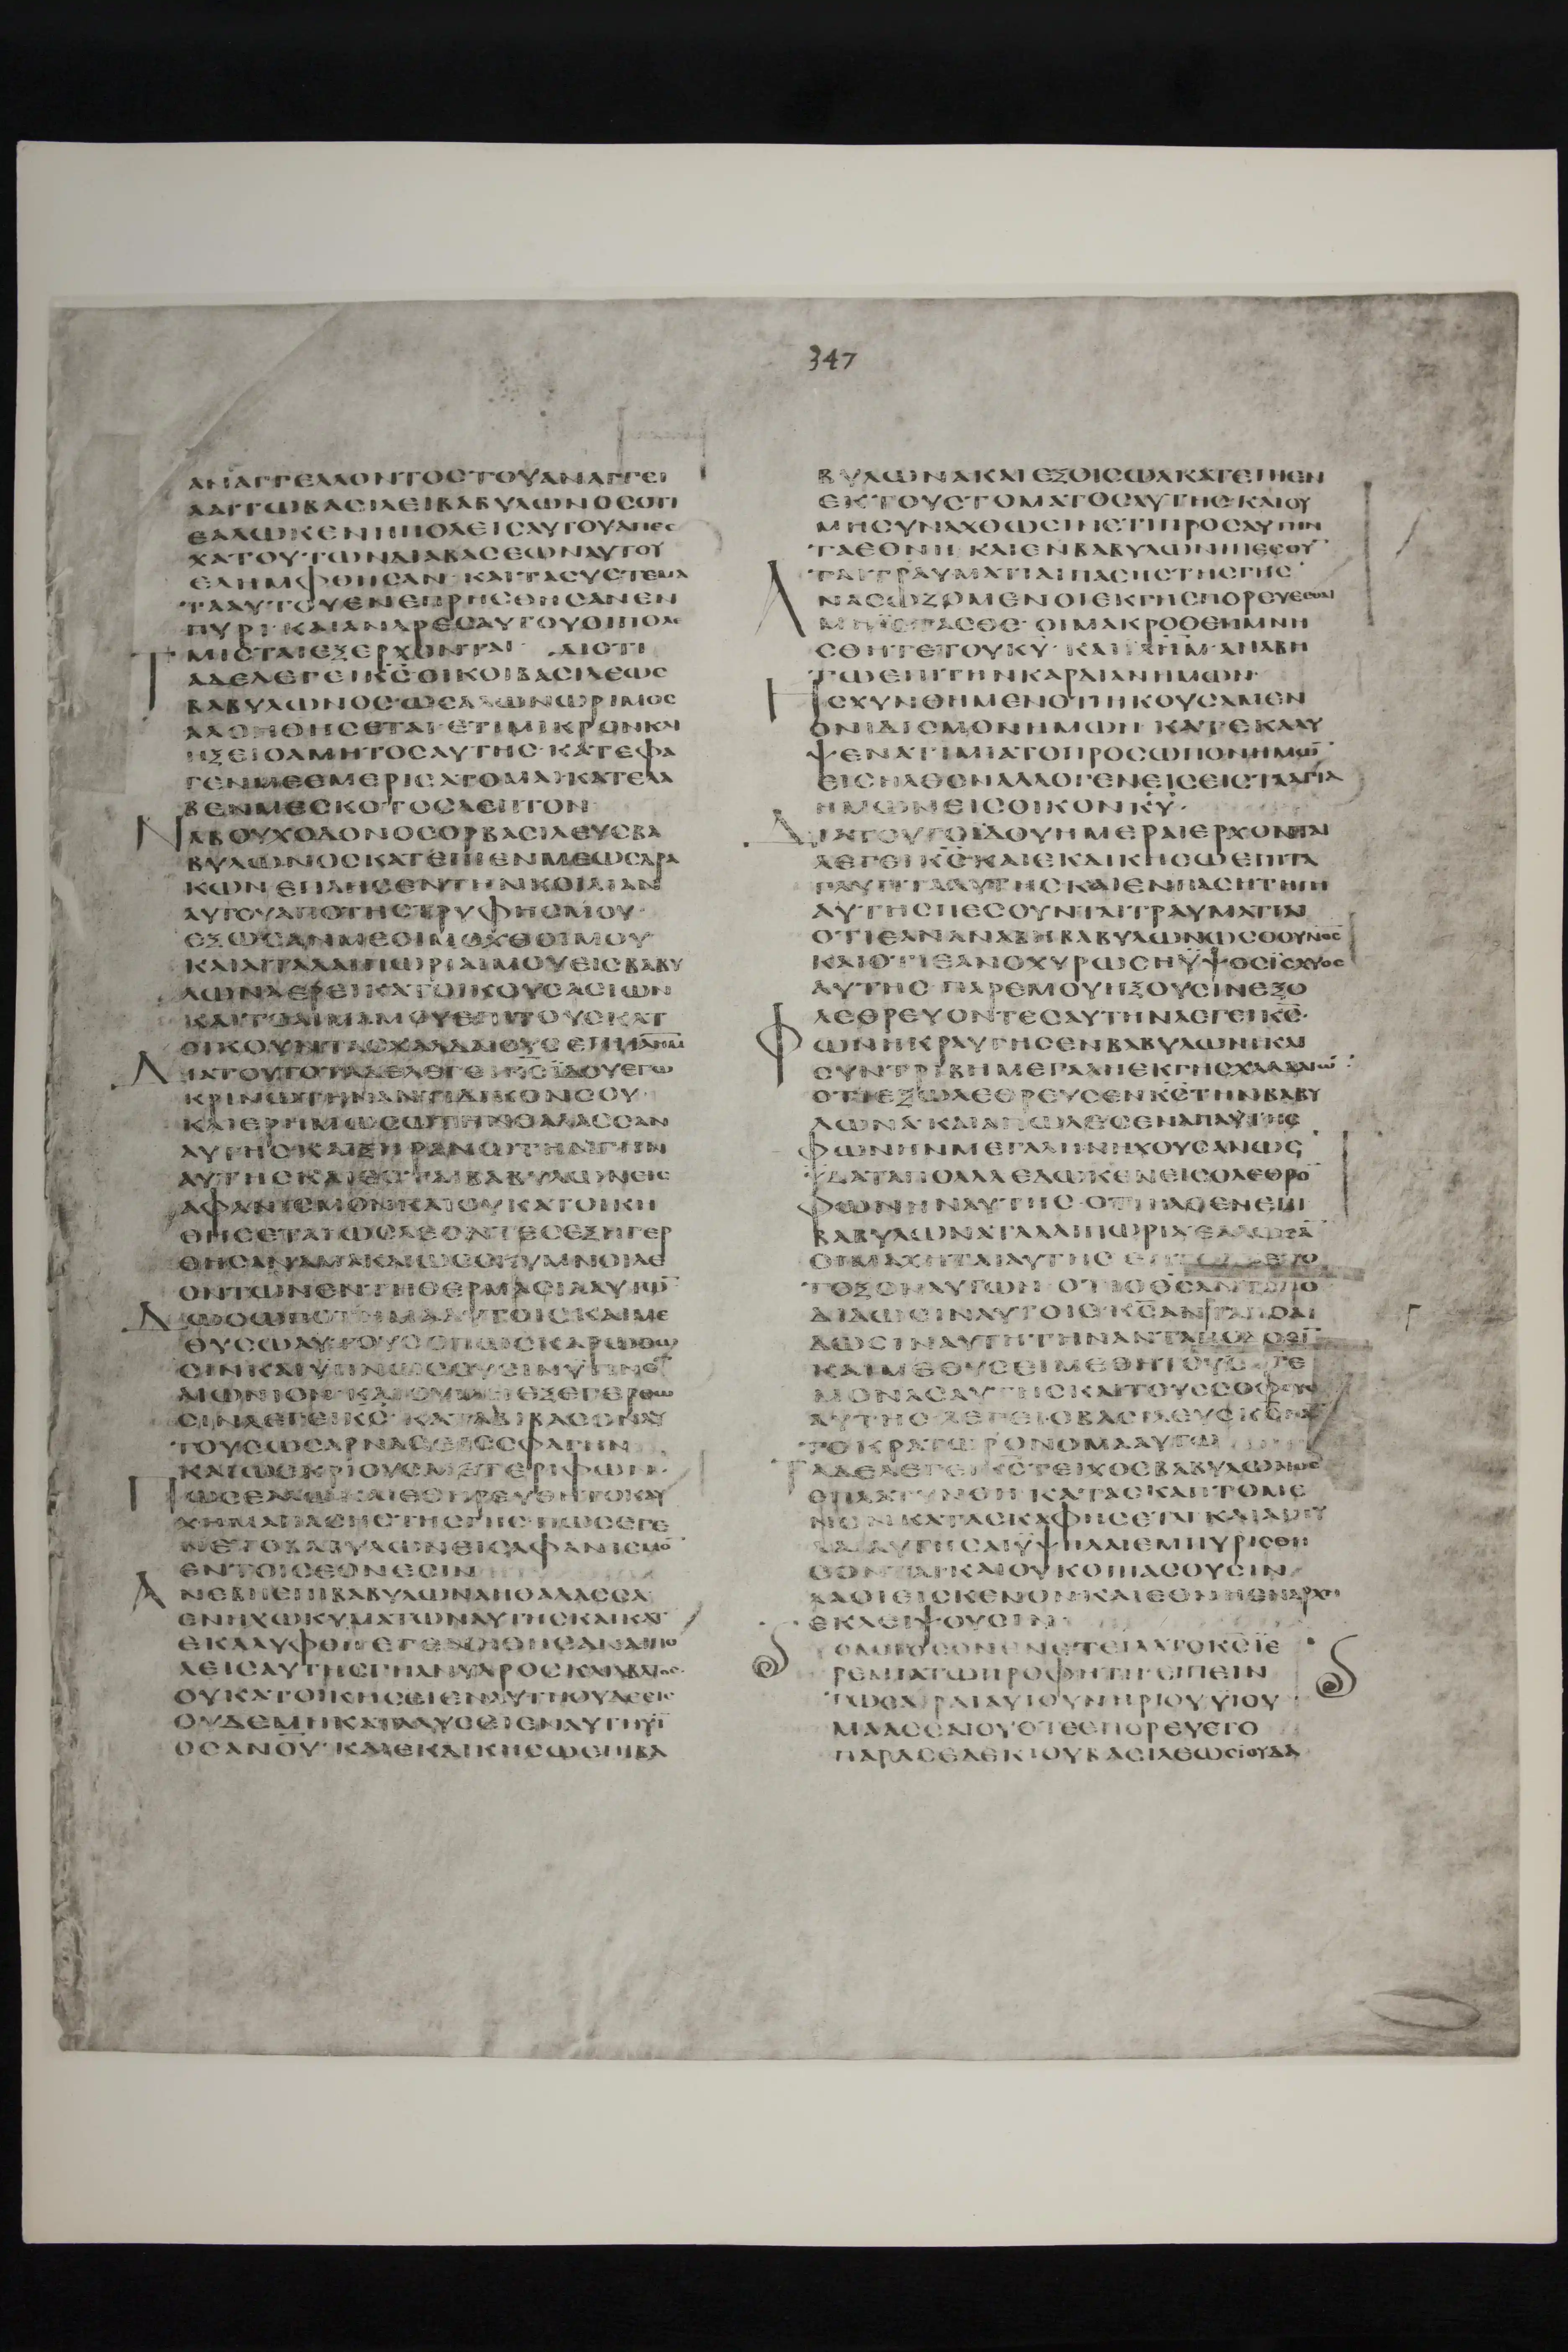 347
ΑΝΑΓΓΕΛΛΟΝΤΟΣΤΟΥΑΝΑΓΓΕΙ
ΛΑΙΤΩΒΑΣΙΛΕΙΒΑΒΥΛΩΝΟΣΟΤΙ
ΕΑΛΩΚΕΝΗΠΟΛΕΙΣΑΥΤΟΥΑΠΕΣ
ΧΑΤΟΥΤΩΝΔΙΑΒΑΣΕΩΝΑΥΤΟΥ
ΕΛΗΜΦΘΗΣΑΝ· ΚΑΙΤΑΣΥΣΤΕΜΑ
ΤΑΑΥΤΟΥΕΝΕΠΡΗΣΘΗΣΑΝΕΝ
ΠΥΡΙ· ΚΑΙΑΝΔΡΕΣΑΥΤΟΥΟΙΠΟΛΕ
ΜΙΣΤΑΙΕΞΕΡΧΟΝΤΑΙ· ΔΙΟΤΙ
ΤΑΔΕΛΕΓΕΙΚΣ ΟΙΚΟΙΒΑΣΙΛΕΩΣ
ΒΑΒΥΛΩΝΟΣΩΣΑΛΩΝΩΡΙΜΟΣ
ΑΛΟΗΘΗΣΕΤΑΙ· ΕΤΙΜΙΚΡΟΝΚΑΙ
ΗΞΕΙΟΑΜΗΤΟΣΑΥΤΗΣ· ΚΑΤΕΦΑ
ΓΕΝΜΕΕΜΕΡΙΣΑΤΟΜΑΙΚΑΤΕΛΑ
ΒΕΝΜΕΣΚΟΤΟΣΛΕΠΤΟΝ
ΝΑΒΟΥΧΟΔΟΝΟΣΟΡΒΑΣΙΛΕΥΣΒΑ
ΒΥΛΩΝΟΣΚΑΤΕΠΙΕΝΜΕΩΣΔΡΑ
ΚΩΝΕΠΛΗΣΕΝΤΗΝΚΟΙΛΙΑΝ
ΑΥΤΟΥΑΠΟΤΗΣΤΡΥΦΗΣΜΟΥ·
ΕΞΩΣΑΝΜΕΟΙΜΟΧΘΟΙΜΟΥ
ΚΑΙΑΙΤΑΛΑΙΠΩΡΙΑΙΜΟΥΕΙΣΒΑΒΥ
ΛΩΝΑΕΡΕΙΚΑΤΟΙΚΟΥΣΑΣΙΩΝ
ΚΑΙΤΟΑΙΜΑΜΟΥΕΠΙΤΟΥΣΚΑΤ
ΟΙΚΟΥΝΤΑΣΧΑΛΔΑΙΟΥΣΕΡΕΙΙΛΗΜ
ΔΙΑΤΟΥΤΟΤΑΔΕΛΕΓΕΙΚΣΙΔΟΥΕΓΩ
ΚΡΙΝΩΤΗΝΑΝΤΙΔΙΚΟΝΣΟΥ·
ΚΑΙΕΡΗΜΩΣΩΤΗΝΘΑΛΑΣΣΑΝ
ΑΥΤΗΣΚΑΙΞΗΡΑΝΩΤΗΝΠΗΓΗΝ
ΑΥΤΗΣΚΑΙΕΣΤΑΙΒΑΒΥΛΩΝΕΙΣ
ΑΦΑΝΙΣΜΟΝΚΑΙΟΥΚΑΤΟΙΚΗ
ΘΗΣΕΤΑΙΩΣΛΕΟΝΤΕΣΕΞΗΓΕΡ
ΘΗΣΑΝΑΜΑΚΑΙΩΣΣΚΥΜΝΟΙΛΕ
ΟΝΤΩΝΕΝΤΗΘΕΡΜΑΣΙΑΑΥΤΩ
ΔΩΣΩΠΟΤΗΜΑΑΥΤΟΙΣΚΑΙΜΕ
ΘΥΣΩΑΥΤΟΥΣΟΠΩΣΚΑΡΩΘΩ
ΣΙΝΚΑΙΥΠΝΩΣΟΥΣΙΝΥΠΝΟ
ΑΙΩΝΙΟΝΚΑΙΟΥΜΗΕΞΕΓΕΡΘΩ
ΣΙΝΛΕΓΕΙΚΣ· ΚΑΤΑΒΙΒΑΣΩΑΥ
ΤΟΥΣΩΣΑΡΝΑΣΕΙΣΣΦΑΓΗΝ
ΚΑΙΩΣΚΡΙΟΥΣΜΕΤΕΡΙΦΩΝ·
ΠΩΣΕΑΛΩΚΑΙΕΘΗΡΕΥΘΗΤΟΚΑΥ
ΧΗΜΑΠΑΣΗΣΤΗΣΓΗΣ· ΠΩΣΕΓΕ
ΝΕΤΟΒΑΒΥΛΩΝΕΙΣΑΦΑΝΙΣΜΟ
ΕΝΤΟΙΣΕΘΝΕΣΙΝ
ΑΝΕΒΗΕΠΙΒΑΒΥΛΩΝΑΗΘΑΛΑΣΣΑ
ΕΝΗΧΩΚΥΜΑΤΩΝΑΥΤΗΣΚΑΙΚΑΤ
ΕΚΑΛΥΦΘΗ
ΛΕΙΣΑΥΤΗΣΓΗΑΝΥΔΡΟΣΚΑΙΑΒΑΤΟΣ·
ΟΥΚΑΤΟΙΚΗΣΕΙΕΝΑΥΤΗΟΥΔΕΕΙΣ
ΟΥΔΕΜΗΚΑΤΑΛΥΣΕΙΕΝΑΥΤΗΥΙ
ΟΣΑΝΟΥ· ΚΑΙΕΚΔΙΚΗΣΩΕΠΙΒΑ
ΒΥΛΩΝΑΚΑΙΕΞΟΙΣΩΑΚΑΤΕΠΙΕΝ
ΕΚΤΟΥΣΤΟΜΑΤΟΣΑΥΤΗΣ· ΚΑΙΟΥ
ΜΗΣΥΝΑΧΘΩΣΙΝΕΤΙΠΡΟΣΑΥΤΗΝ
ΤΑΕΘΝΗ· ΚΑΙΕΝΒΑΒΥΛΩΝΙΠΕΣΟΥ
ΤΑΙΤΡΑΥΜΑΤΙΑΙΠΑΣΗΣΤΗΣΓΗΣ·
ΑΝΑΣΩΖΟΜΕΝΟΙΕΚΓΗΣΠΟΡΕΥΕΣΘΑΙ
ΜΗΙΣΤΑΣΘΕ· ΟΙΜΑΚΡΟΘΕΝΜΝΗ
ΣΘΗΤΕΤΟΥΚΥ· ΚΑΙΙΛΗΜΑΝΑΒΗ
ΤΩΕΠΙΤΗΝΚΑΡΔΙΑΝΗΜΩΝ·
ΗΣΧΥΝΘΗΜΕΝΟΤΙΗΚΟΥΣΑΜΕΝ
ΟΝΙΔΙΣΜΟΝΗΜΩΝ· ΚΑΤΕΚΑΛΥ
ΨΕΝΑΤΙΜΙΑΤΟΠΡΟΣΩΠΟΝΗΜΩ
ΕΙΣΗΛΘΕΝΑΛΛΟΓΕΝΕΙΣΕΙΣΤΑΑΓΙΑ
ΗΜΩΝΕΙΣΟΙΚΟΝΚΥ·
ΔΙΑΤΟΥΤΟΙΔΟΥΗΜΕΡΑΙΕΡΧΟΝΤΑΙ
ΛΕΓΕΙΚΣ· ΚΑΙΕΚΔΙΚΗΣΩΕΠΙΤΑ
ΓΛΥΠΤΑΑΥΤΗΣΚΑΙΕΝΠΑΣΗΤΗΓΗ
ΑΥΤΗΣΠΕΣΟΥΝΤΑΙΤΡΑΥΜΑΤΙΑΙ
ΟΤΙΕΑΝΑΝΑΒΗΒΑΒΥΛΩΝΩΣΟΟΥΝΟΣ
ΚΑΙΟΤΙΕΑΝΟΧΥΡΩΣΗΥΨΟΣΙΣΧΥΟΣ
ΑΥΤΗΣ· ΠΑΡΕΜΟΥΗΞΟΥΣΙΝΕΞΟ
ΛΕΘΡΕΥΟΝΤΕΣΑΥΤΗΝΛΕΓΕΙΚΣ·
ΦΩΝΗΚΡΑΥΓΗΣΕΝΒΑΒΥΛΩΝΙΚΑΙ
ΣΥΝΤΡΙΒΗΜΕΓΑΛΗΕΚΓΗΣΧΑΛΔΑΙΩ
ΟΤΙΕΞΩΛΕΘΡΕΥΣΕΝΚΣΤΗΝΒΑΒΥ
ΛΩΝΑ· ΚΑΙΑΠΩΛΕΣΕΝΑΠΑΥΤΗΣ
ΦΩΝΗΝΜΕΓΑΛΗΝΗΧΟΥΣΑΝΩΣ
ΥΔΑΤΑΠΟΛΛΑΕΔΩΚΕΝΕΙΣΟΛΕΘΡΟ
ΦΩΝΗΝΑΥΤΗΣ· ΟΤΙΗΛΘΕΝΕΠΙ
ΒΑΒΥΛΩΝΑΤΑΛΑΙΠΩΡΙΑ
ΟΙΜΑΧΗΤΑΙΑΥΤΗΣ
ΤΟΞΟΝΑΥΤΩΝ· ΟΤΙΟΘΣΑΝΤΑΠΟ
ΔΙΔΩΣΙΝΑΥΤΟΙΣ· ΚΣΑΝΤΑΠΟΔΙ
ΔΩΣΙΝΑΥΤΗΤΗΝΑΝΤΑΠΟΔΟΣΙ
ΚΑΙΜΕΘΥΣΕΙΜΕΘΗΤΟΥΣΗΓΕ
ΜΟΝΑΣΑΥΤΗΣΚΑΙΤΟΥΣΣΟΦΟΥΣ
ΑΥΤΗΣ· ΛΕΓΕΙΟΒΑΣΙΛΕΥΣΚΣΠΑ
ΤΟΚΡΑΤΩΡΟΝΟΜΑΑΥΤΩ
ΤΑΔΕΛΕΓΕΙΚΣΤΕΙΧΟΣΒΑΒΥΛΩΝΟΣ
ΕΠΛΑΤΥΝΘΗΚΑΤΑΣΚΑΠΤΟΜΕ
ΝΟΝΚΑΤΑΣΚΑΦΗΣΕΤΑΙ· ΚΑΙΑΙΠΥ
ΛΑΙΑΥΤΗΣΑΙΥΨΗΛΑΙΕΜΠΥΡΙΣΘΗ
ΣΟΝΤΑΙΚΑΙΟΥΚΟΠΙΑΣΟΥΣΙΝ
ΛΑΟΙΕΙΣΚΕΝΟΝ· ΚΑΙΕΘΝΗΕΝΑΡΧΗ
ΕΚΛΕΙΨΟΥΣΙΝ
ΟΛΟΓΟΣΟΝΕΝΕΤΕΙΛΑΤΟΚΣΙΕ
ΡΕΜΙΑΤΩΠΡΟΦΗΤΗΕΙΠΕΙΝ
ΤΩΣΑΡΑΙΑΥΙΟΥΝΗΡΙΟΥΥΙΟΥ
ΜΑΑΣΣΑΙΟΥΟΤΕΕΠΟΡΕΥΕΤΟ
ΠΑΡΑΣΕΔΕΚΙΟΥΒΑΣΙΛΕΩΣΙΟΥΔΑ